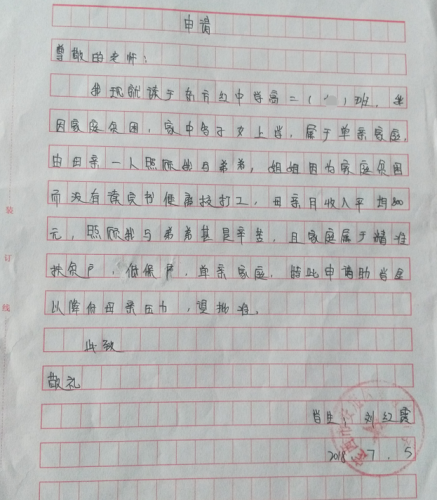 申请
尊敬的老师：
我现就读于东方红中学高二（ ）班，
因家庭贫困，家中多子女上学，属于单亲家庭，
由母亲一人照顾我与弟弟，姐姐因为家庭贫困
而没有读完书便离校打工，母亲月收入平均800
元，照顾我与弟弟甚是辛苦，且家庭属于精准
扶贫户，低保户，单亲家庭，特此申请助学金
以降低母亲压力，望批准。
此致
敬礼
学生：刘红霞
2018 7 . 5
装
订
线